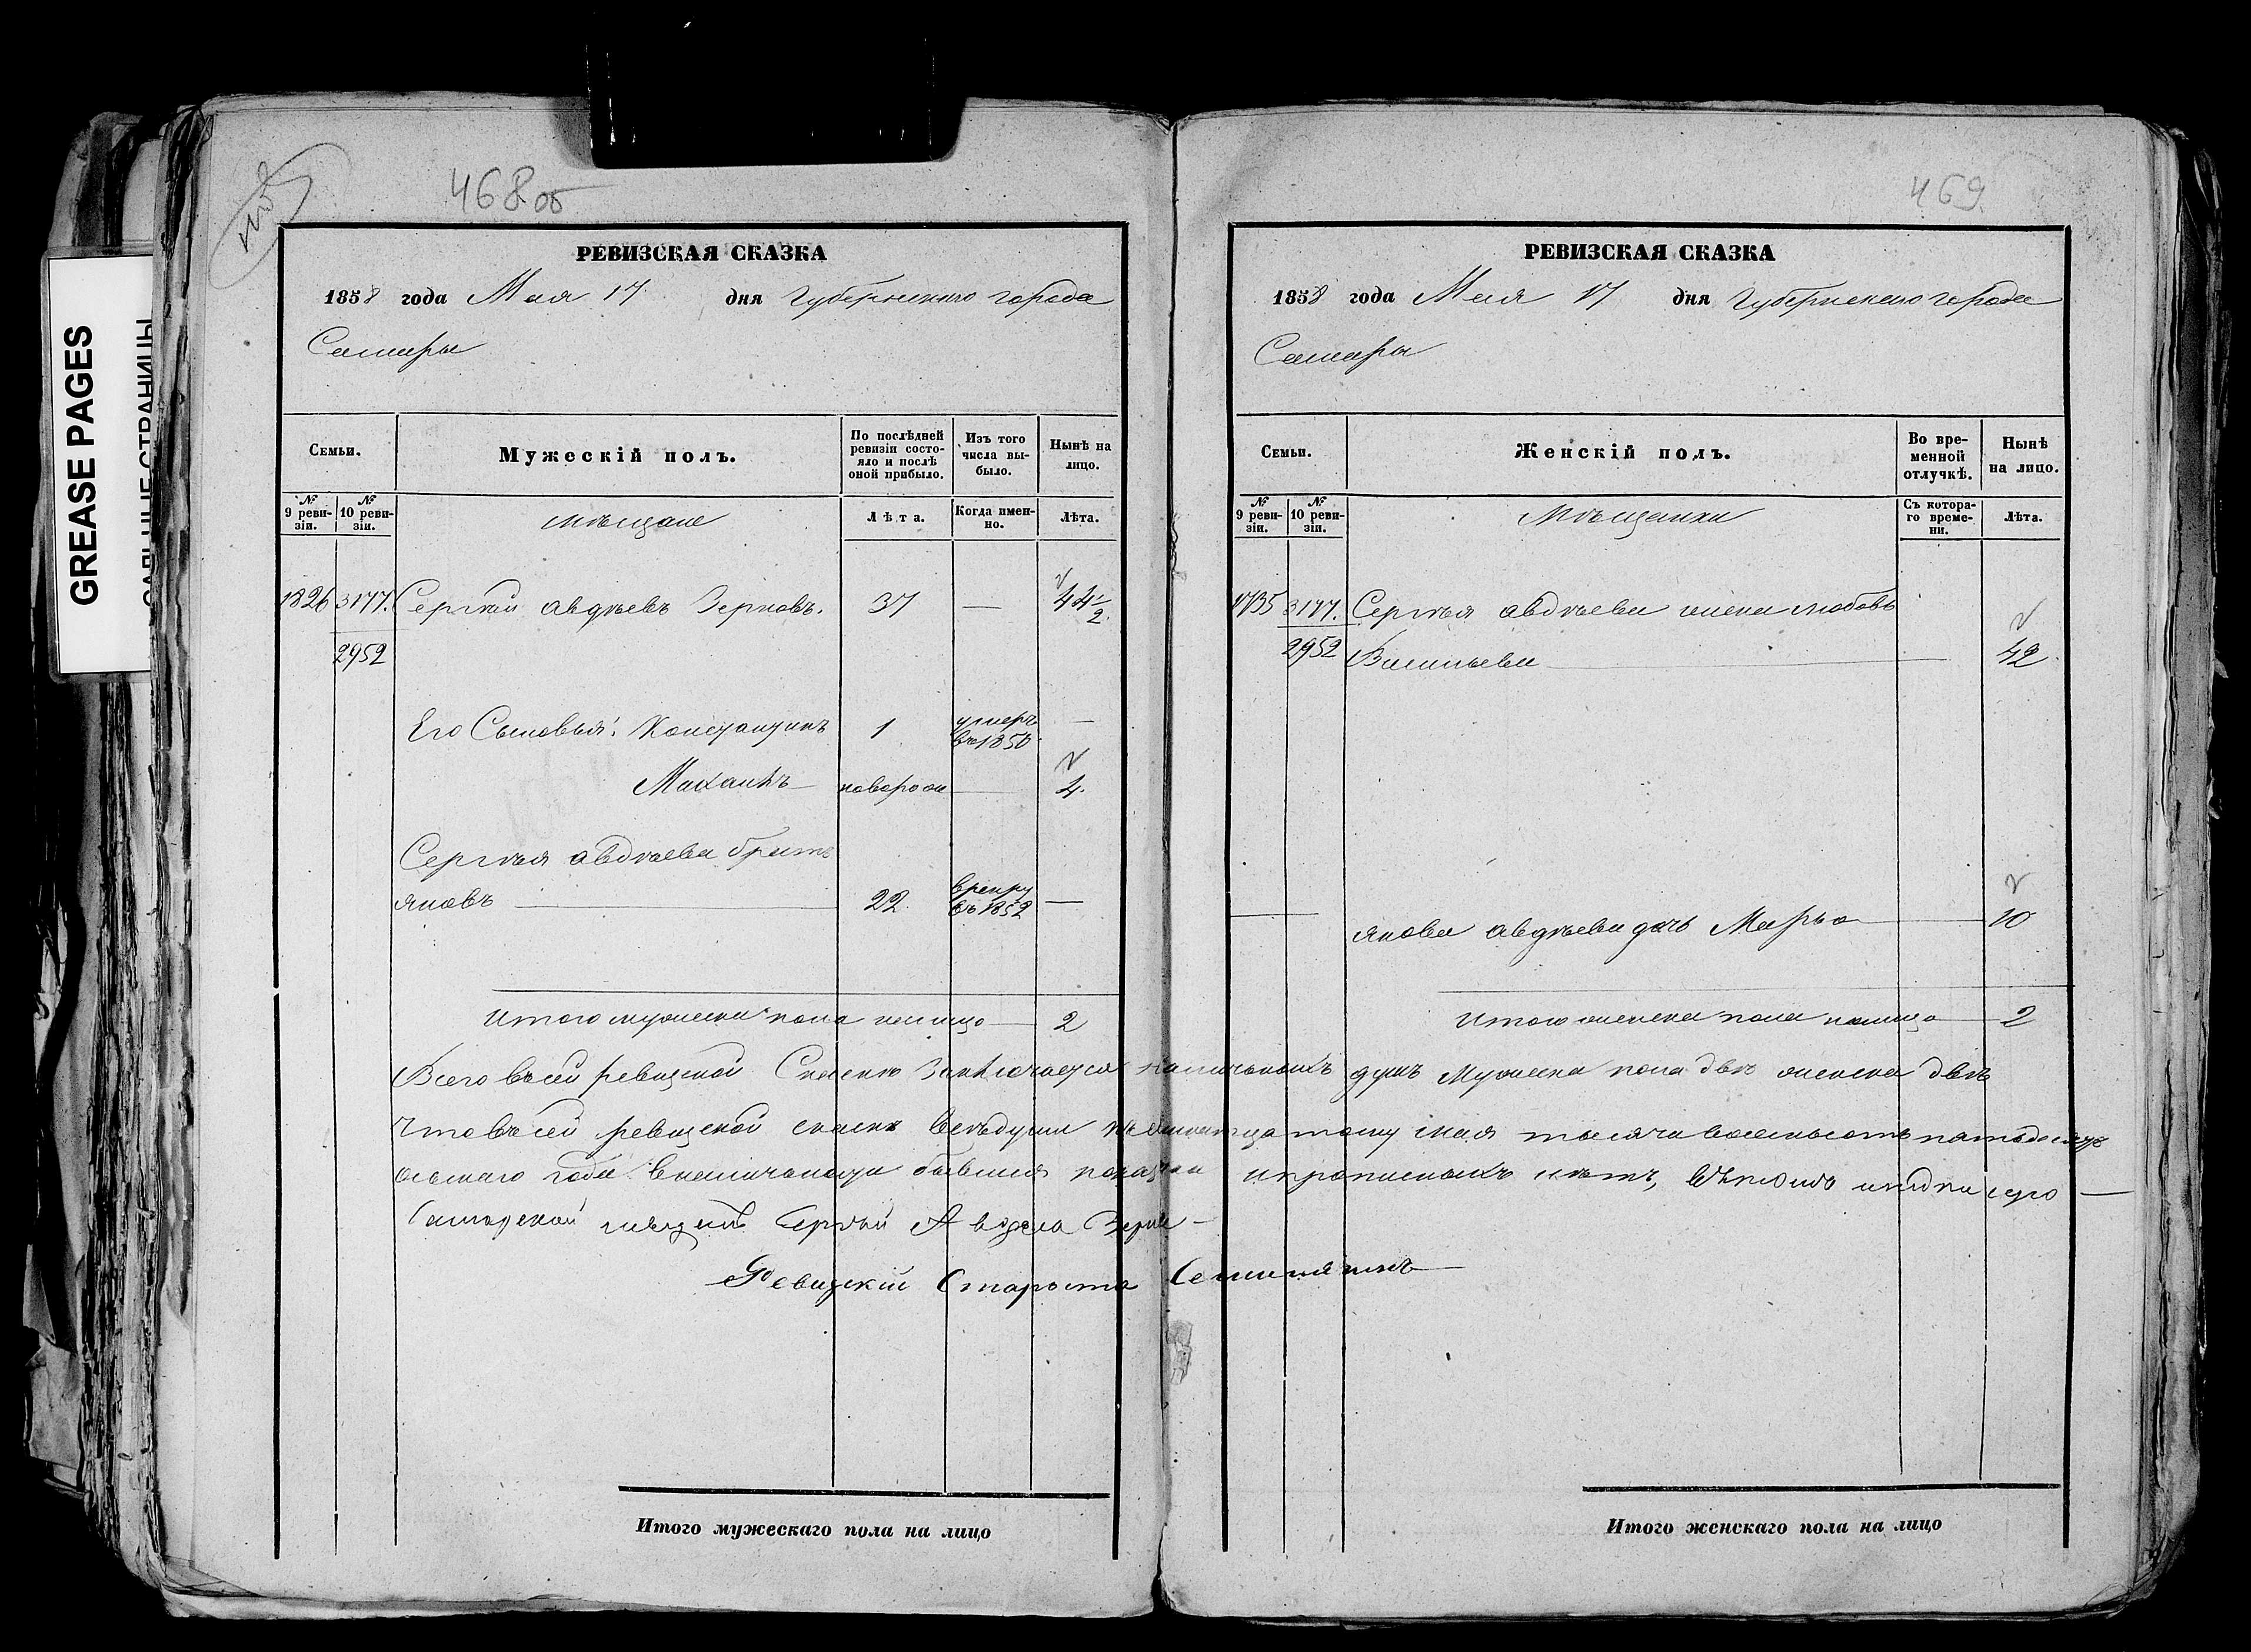 GREASE PAGES
468 об
РЕВИЗСКАЯ СКАЗКА
1858 года Мая 17 дня Губернскаго города
Самары
Семьи.
Мужескій полъ.
По послѣдней ревизіи состояло и послѣ оной прибыло.
Изъ того числа выбыло.
Нынѣ на лицо.
№ 9 ревизіи.
№ 10 ревизіи.
мѣщане
Лѣта.
Когда именно.
Лѣта.
1826 3177. Сергѣй Авдѣевъ Зерновъ. 37 — 44 1/2
2952
Его Сыновья: Константинъ 1 умеръ въ 1850 —
Михаилъ — новорож — 4.
Сергѣя Авдѣева братъ
Яковъ — 22 врекру въ 1852 —
Итого мужеска пола налицо — 2
469
РЕВИЗСКАЯ СКАЗКА
1858 года Мая 17 дня Губернскаго города
Самары
Семьи.
Женскій полъ.
Во временной отлучкѣ.
Нынѣ на лицо.
№ 9 ревизіи.
№ 10 ревизіи.
Мѣщанки
Съ котораго времени.
Лѣта.
1735 3177. Сергѣя Авдѣева жена Любовь
2952 Васильева — 42
Якова Авдѣева дочь Марья — 10
Итого женска пола налицо — 2
Всего въ сей ревизской Сказкѣ Заключается наличныхъ душъ Мужеска пола двѣ женска двѣ
Что въ сей ревизской сказкѣ всѣ души мая тысяча восемьсотъ пятьдесятъ
осьмаго года в наличности бывшія показаны и прописныхъ нѣтъ, въ томъ и подписуюсь —
Сергѣй Авдеев
Ревизскій Староста
Итого мужескаго пола на лицо
Итого женскаго пола на лицо